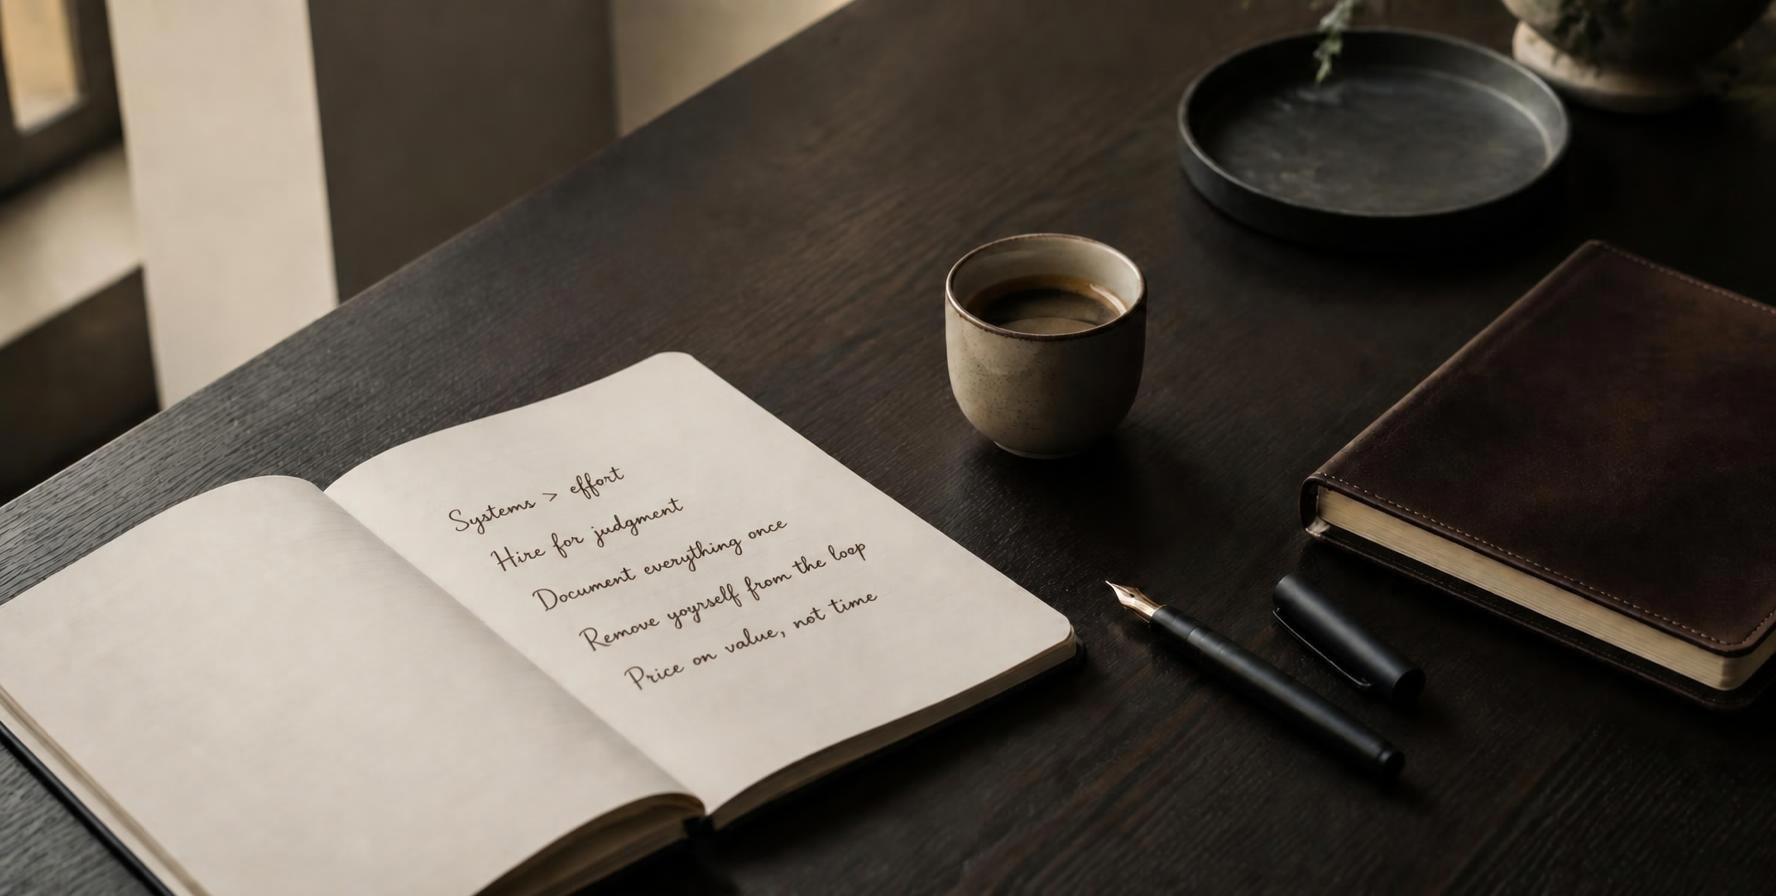 Systems > effort
Hire for judgment
Document everything once
Remove yoyrself from the loep
Price on value, not time